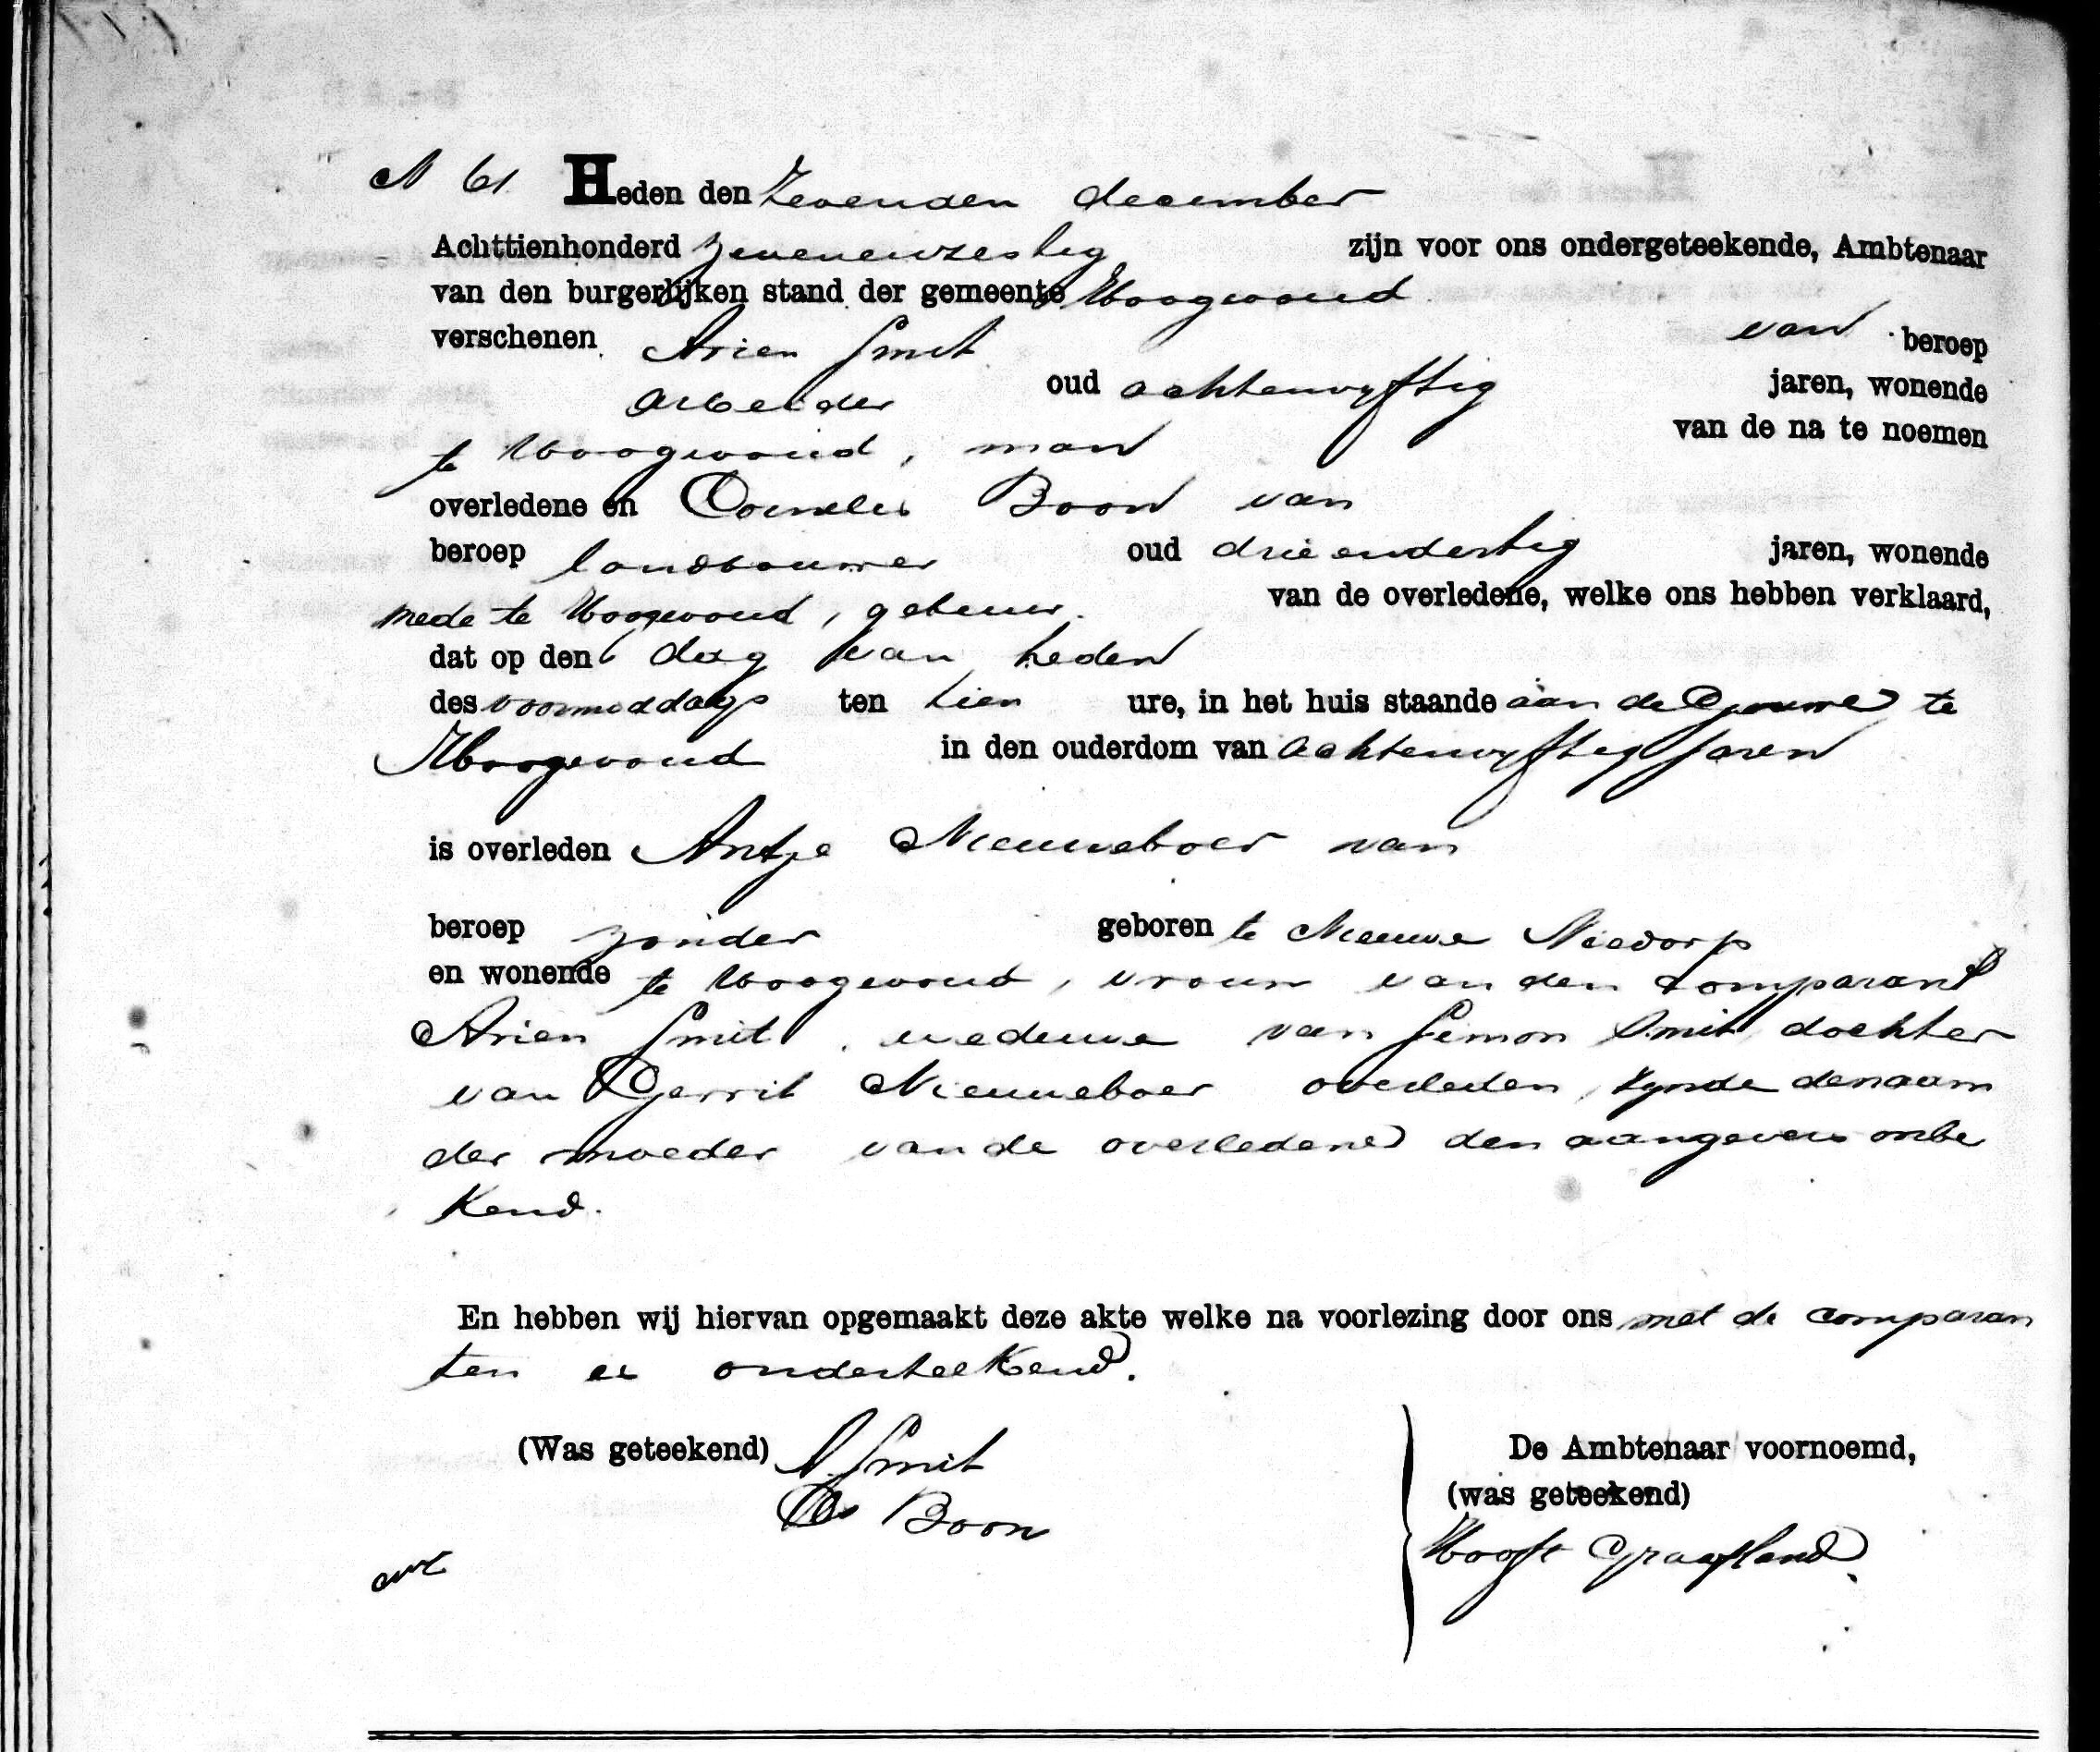 N 61 Heden den Zevenden december
Achttienhonderd zevenenzestig zijn voor ons ondergeteekende, Ambtenaar
van den burgerlijken stand der gemeente Hoogwoud
verschenen Arien Smit van beroep
arbeider oud achtenvyftig jaren, wonende
te Hoogwoud, man van de na te noemen
overledene en Cornelis Boon van
beroep landbouwer oud drieendertig jaren, wonende
mede te Hoogwoud, gebuur. van de overledene, welke ons hebben verklaard,
dat op den dag van heden
des voormiddags ten tien ure, in het huis staande aan de Gouwe te
Hoogwoud in den ouderdom van achtenvyftig jaren
is overleden Antje Nieuweboer van
beroep zonder geboren te Nieuwe Niedorp
en wonende te Hoogwoud, vrouw van den comparant
Arien Smit, weduwe van Simon Smit, dochter
van Gerrit Nieuweboer overleden, zynde de naam
der moeder van de overledene den aangevers onbe
kend.
En hebben wij hiervan opgemaakt deze akte welke na voorlezing door ons met de comparan
ten is onderteekend.
(Was geteekend) A. Smit De Ambtenaar voornoemd,
Cs Boon (was geteekend)
Hooft Graafland